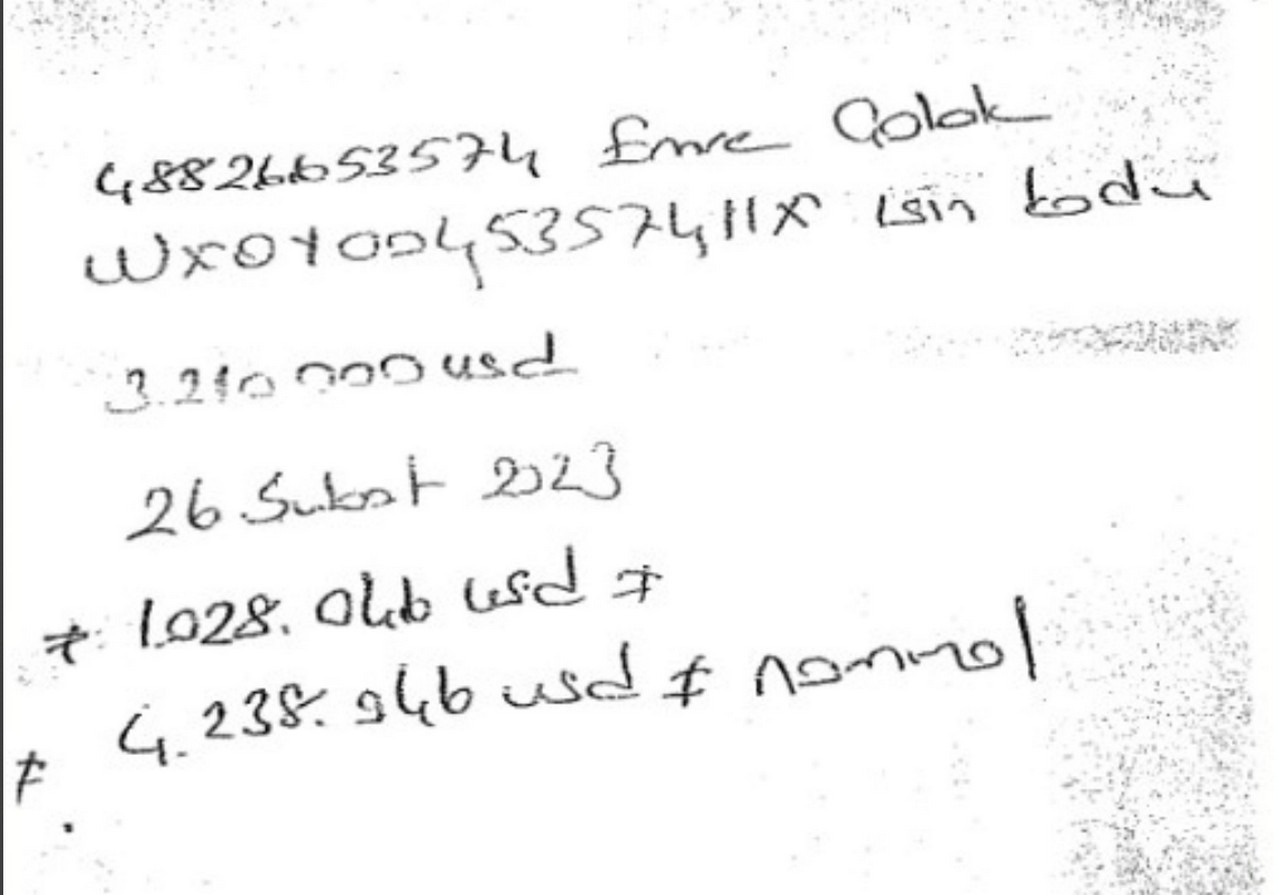 48826653574 Emre Çolak
WX0Y0045357411X isin kodu
3.210 000 usd
26 Subat 2023
≠ 1.028. 046 usd ≠
≠ 4.238. 046 usd ≠ nominal